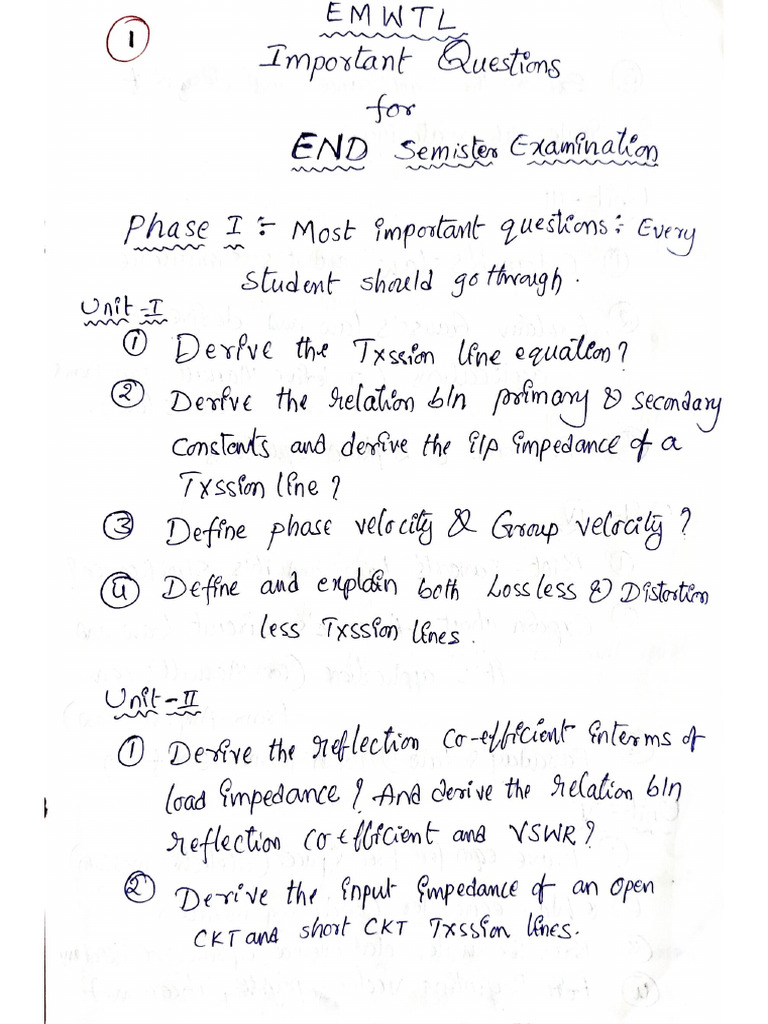 1
EMWTL
Important Questions
for
END Semister Examination
Phase I :- Most important questions : Every
Student should go through .
Unit - I
① Derive the Txssion line equation?
② Derive the relation b/n primary & secondary
constants and derive the i/p impedance of a
Txssion line?
③ Define phase velocity & Group velocity?
④ Define and explain both Lossless & Distortion
less Txssion lines.
Unit - II
① Derive the reflection co-efficient interms of
load impedance? And derive the relation b/n
reflection co-efficient and VSWR?
② Derive the input impedance of an open
CKT and short CKT Txssion lines.